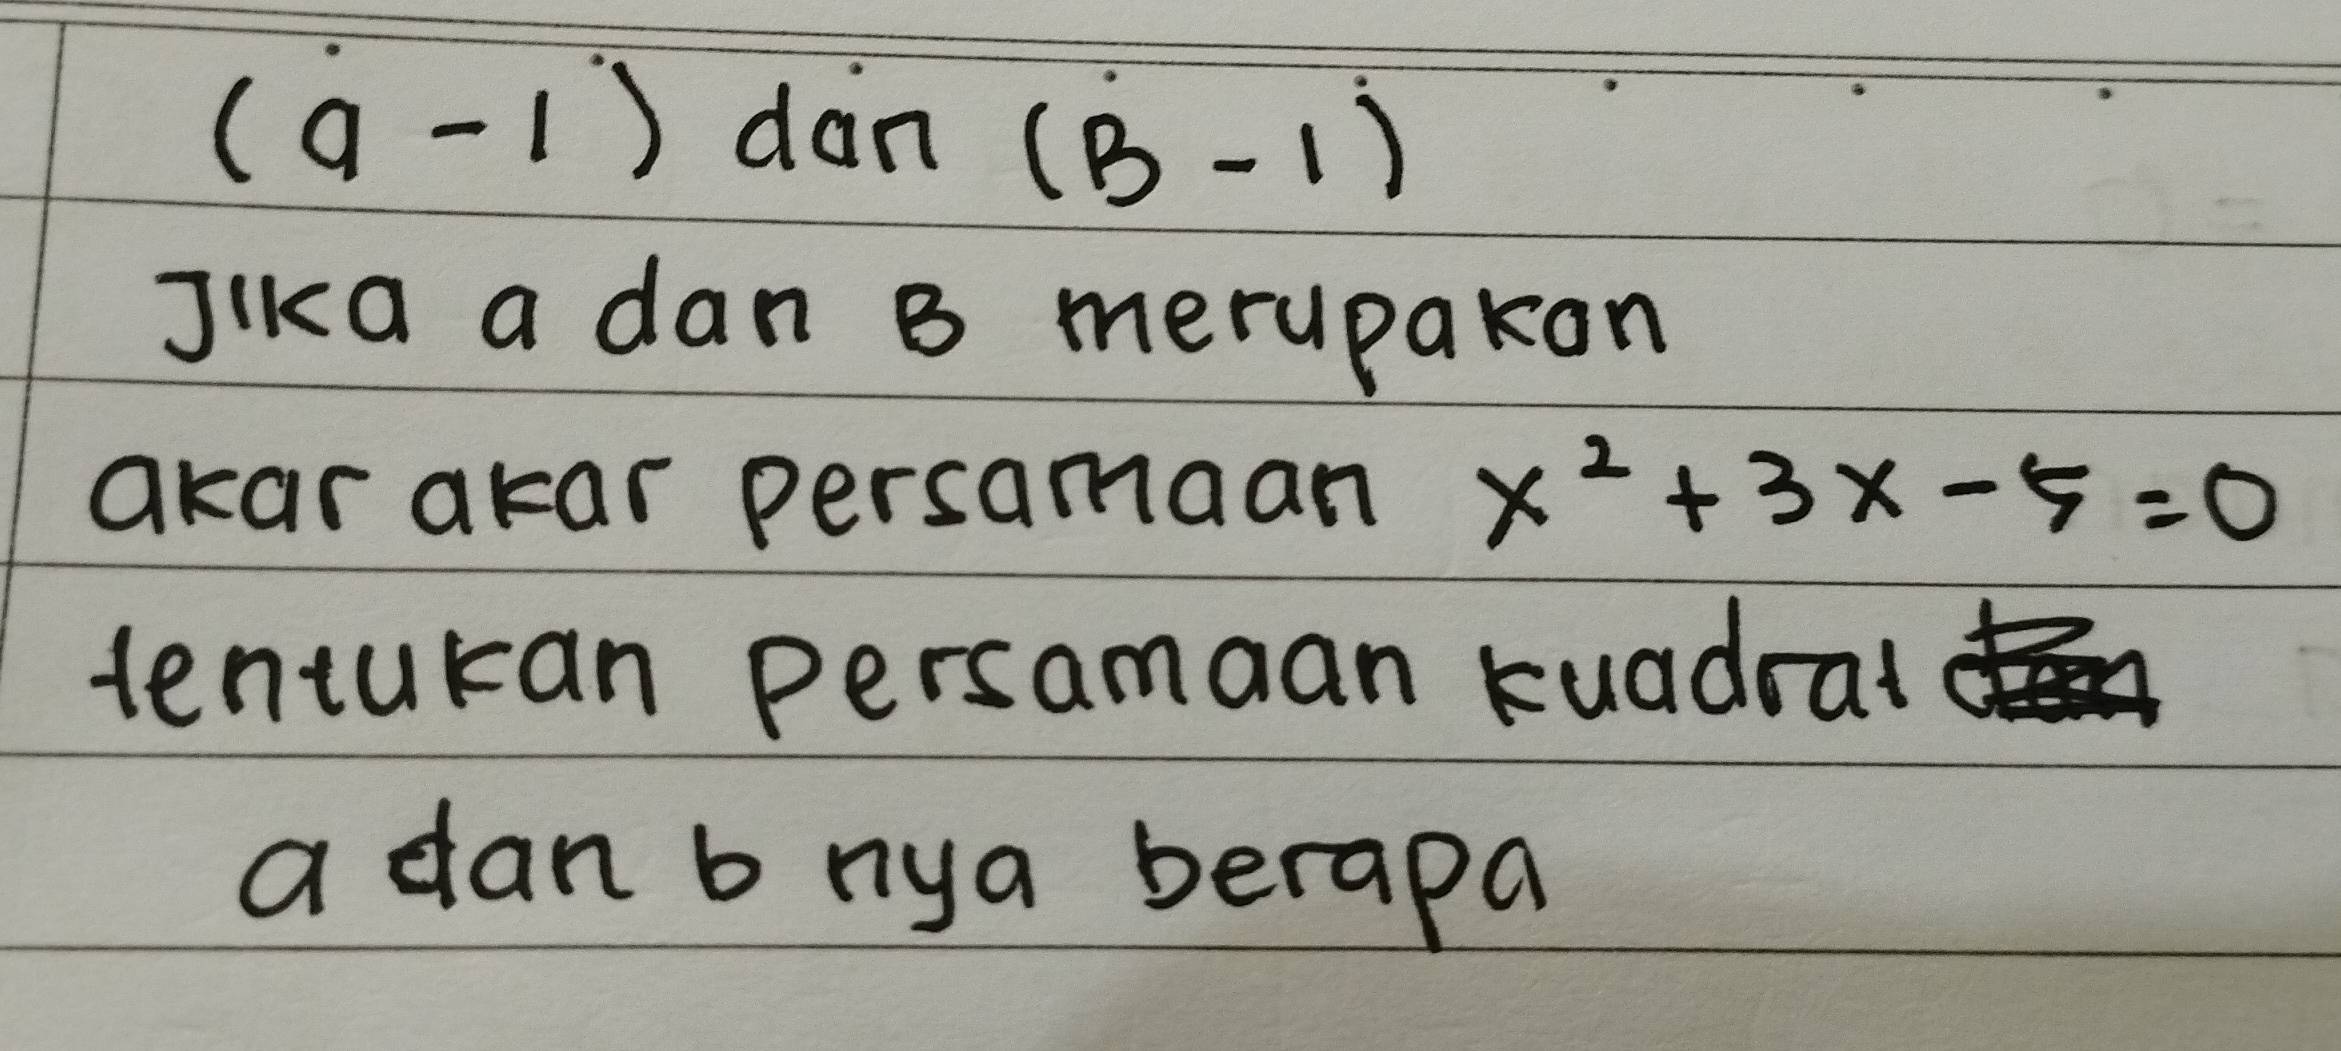 (a - 1) dan (B - 1)
Jika a dan B merupakan
akar akar persamaan x² + 3x - 5 = 0
tentukan persamaan kuadrat
a dan b nya berapa